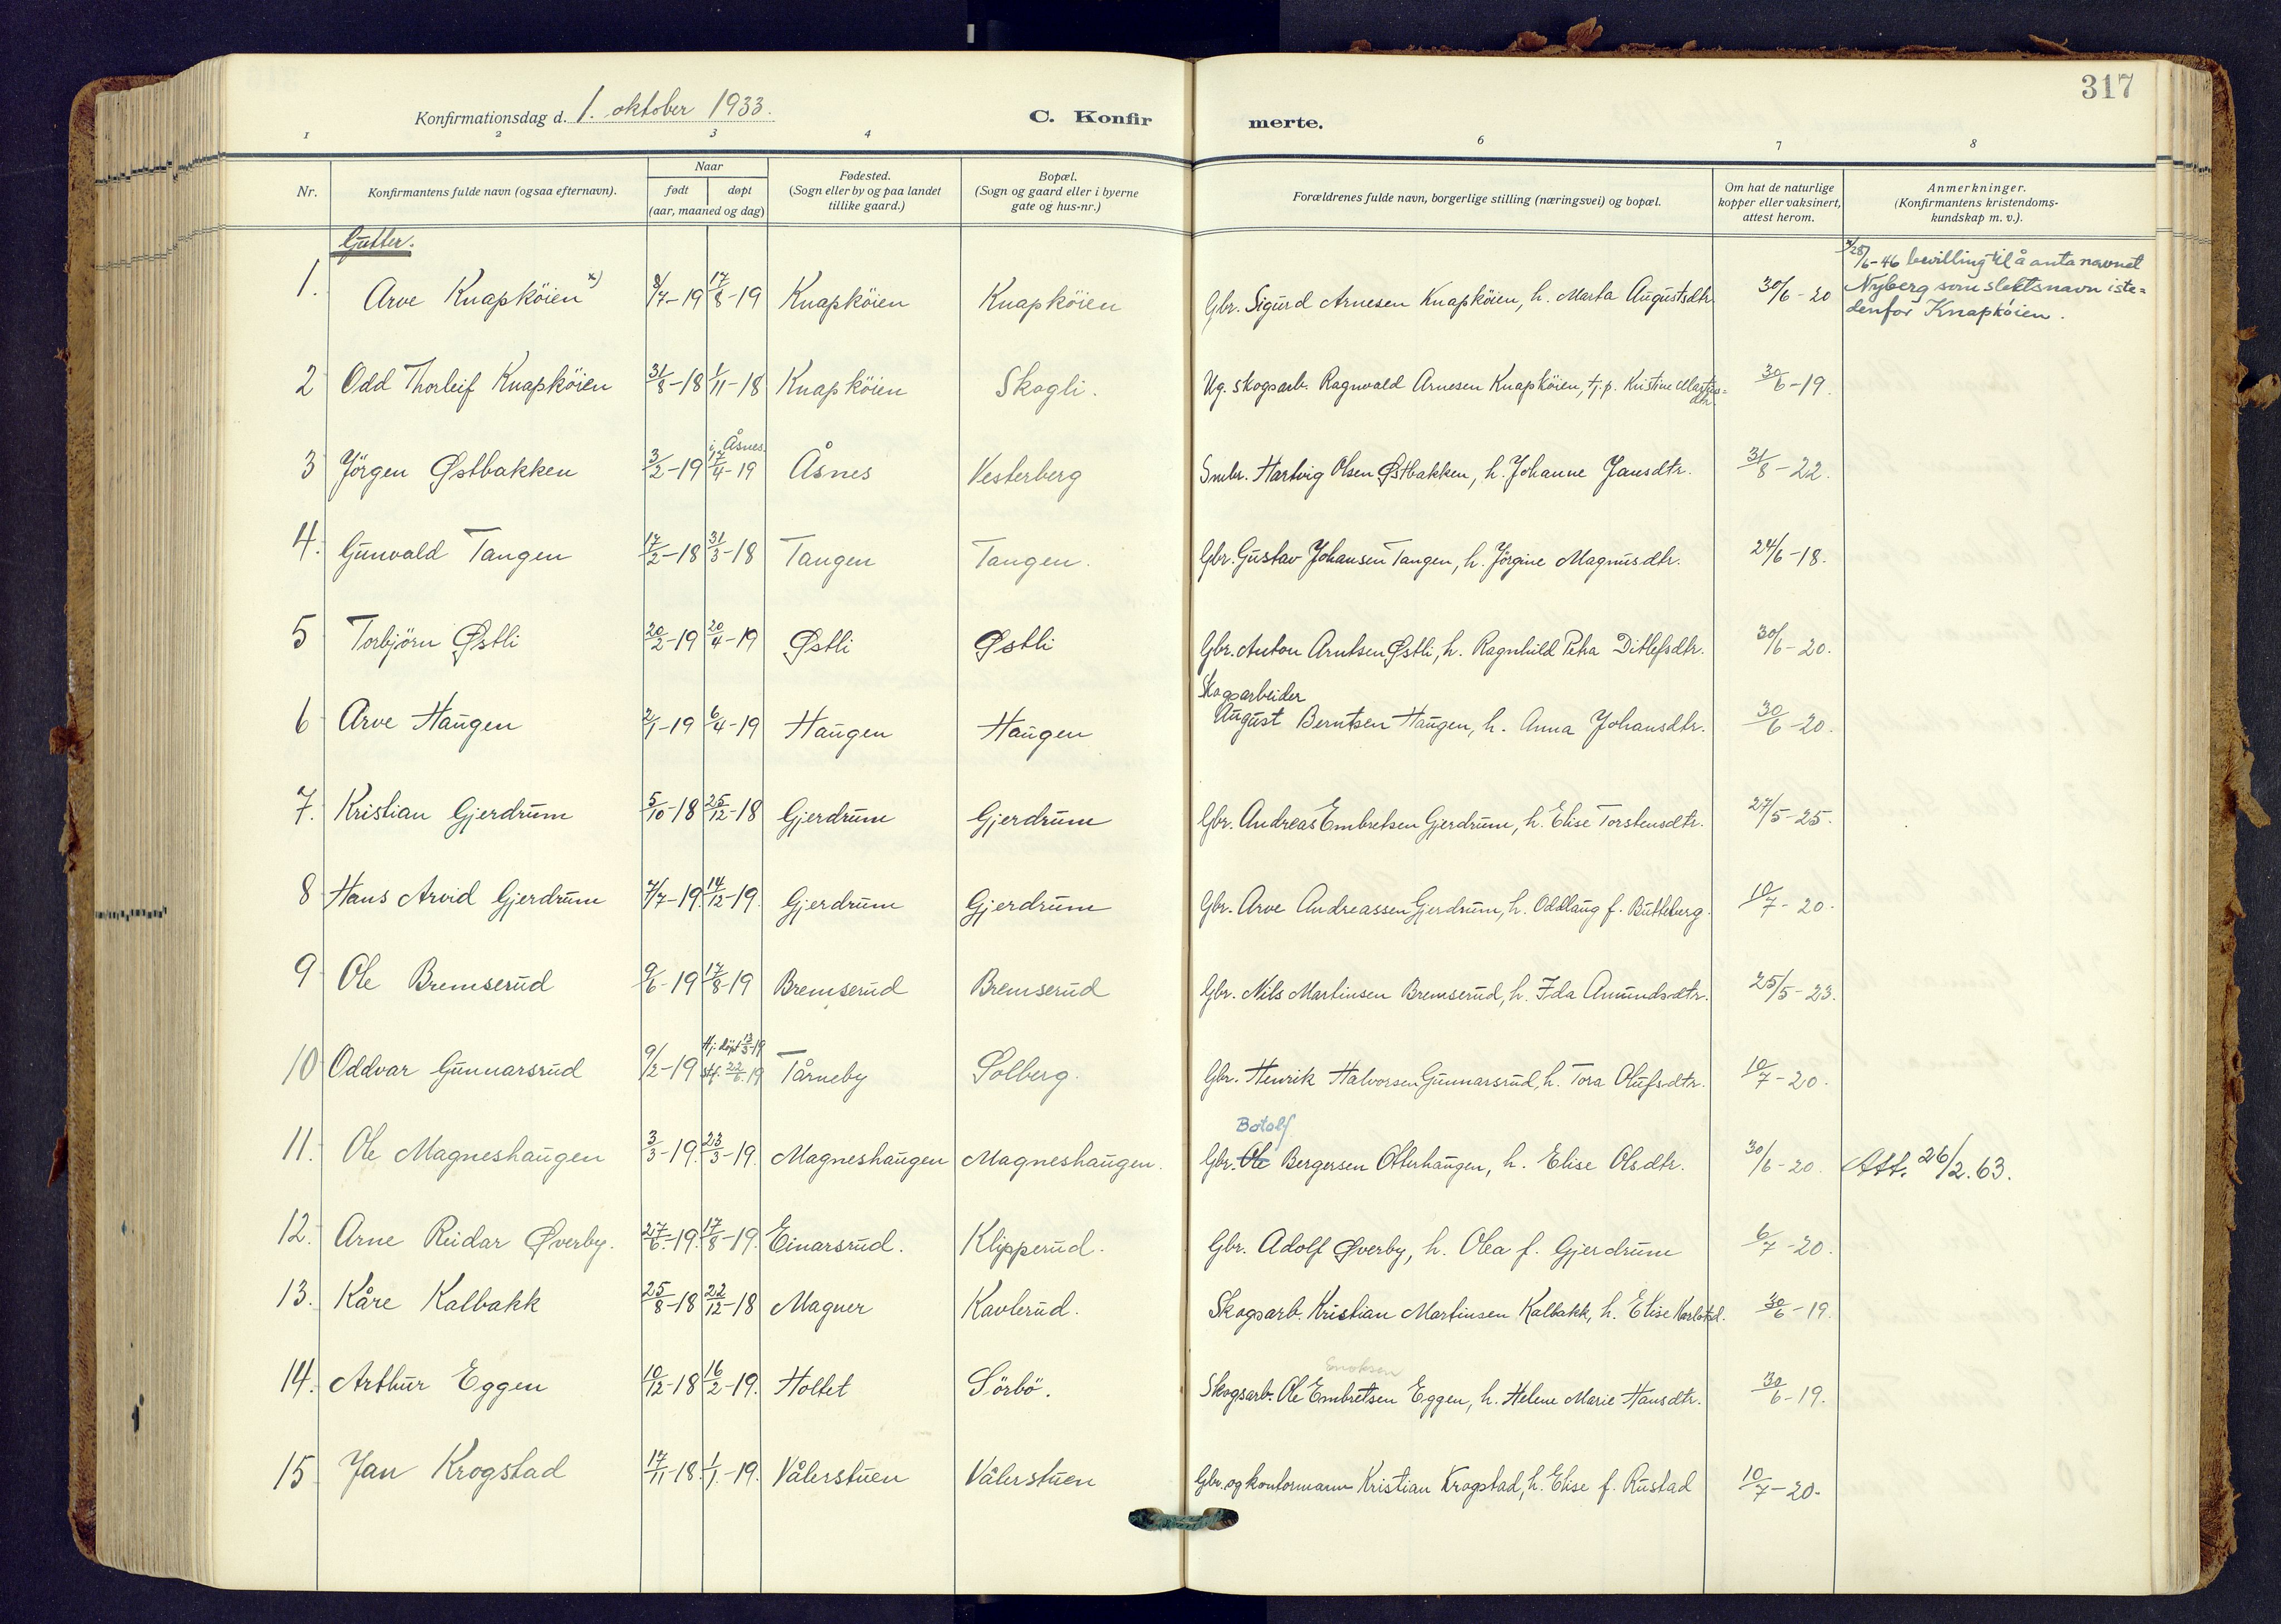 317
Konfirmationsdag d. 1. oktober 1933.
C. Konfirmerte.
1 2 3 4 6 7 8
Nr.
Konfirmantens fulde navn (ogsaa efternavn).
Naar
født døpt
(aar, maaned og dag)
Fødested.
(Sogn eller by og paa landet
tillike gaard.)
Bopæl.
(Sogn og gaard eller i byerne
gate og hus-nr.)
Forældrenes fulde navn, borgerlige stilling (næringsvei) og bopæl.
Om hat de naturlige
kopper eller vaksinert,
attest herom.
Anmerkninger.
(Konfirmantens kristendoms-
kundskap m. v.).
Gutter.
1. Arve Knapköien x) 8/7-19 17/8-19 Knapköien Knapköien Gbr. Sigurd Arnesen Knapköien, h. Marta Augustsdtr. 30/6-20
x) 28/6-46 bevilling til å anta navnet
Nyberg som slektsnavn iste-
denfor Knapköien.
2 Odd Thorleif Knapköien 31/8-18 1/11-18 Knapköien Skogli. Ug. skogsarb. Ragnvald Arnesen Knapköien, t.j.p. Kristine Martins-
dtr. 30/6-19.
3 Jörgen Østbakken 3/2-19 i Åsnes 17/4-19 Åsnes Vesterberg Smbr. Hartvig Olsen Østbakken, h. Johanne Jansdtr. 31/8-22.
4. Gunvald Tangen 17/2-18 31/3-18 Tangen Tangen. Gbr. Gustav Johansen Tangen, h. Jörgine Magnusdtr. 24/6-18.
5 Torbjörn Østli 20/2-19 20/4-19 Østli Østli Gbr. Anton Arntsen Østli, h. Ragnhild Petra Ditlefsdtr. 30/6-20.
6 Arve Haugen 2/1-19 6/4-19 Haugen Haugen Skogsarbeider
August Berntsen Haugen, h. Anna Johansdtr. 30/6-20.
7. Kristian Gjerdrum 5/10-18 25/12-18 Gjerdrum Gjerdrum Gbr. Andreas Embretsen Gjerdrum, h. Elise Torstensdtr. 27/5-25.
8 Hans Arvid Gjerdrum 7/7-19. 14/12-19. Gjerdrum Gjerdrum Gbr. Arve Andreassen Gjerdrum, h. Oddlaug f. Butteberg. 10/7-20.
9 Ole Bremserud 9/6-19 17/8-19 Bremserud Bremserud Gbr. Nils Martinsen Bremserud, h. Ida Amundsdtr. 25/5-23.
10 Oddvar Gunnarsrud 9/2-19 Hj. döpt 13/3-19
stf. 22/6.19 Tårneby Solberg. Gbr. Henrik Halvorsen Gunnarsrud, h. Tora Olufsdtr. 10/7-20.
11. Ole Magneshaugen 3/3-19. 23/3-19. Magneshaugen Magneshaugen. Botolf
Gbr. Ole Bergersen Otterhaugen, h. Elise Olsdtr. 30/6-20. Att. 26/2.63.
12. Arne Reidar Øverby. 27/6.-19. 17/8-19. Einarsrud. Klipperud. Gbr. Adolf Øverby, h. Olea f. Gjerdrum 6/7-20.
13. Kåre Kalbakk 25/8-18 22/12-18 Magner Kavlerud. Skogsarb. Kristian Martinsen Kalbakk, h. Elise 30/6-19.
14. Arthur Eggen 10/12-18 16/2-19. Holtet Sörbö. Enoksen
Skogsarb. Ole Embretsen Eggen, h. Helene Marie Hansdtr. 30/6-19.
15 Jan Krogstad 17/11-18. 1/1.-19. Vålerstuen Vålerstuen Gbr. og kontormann Kristian Krogstad, h. Elise f. Rustad 10/7-20.